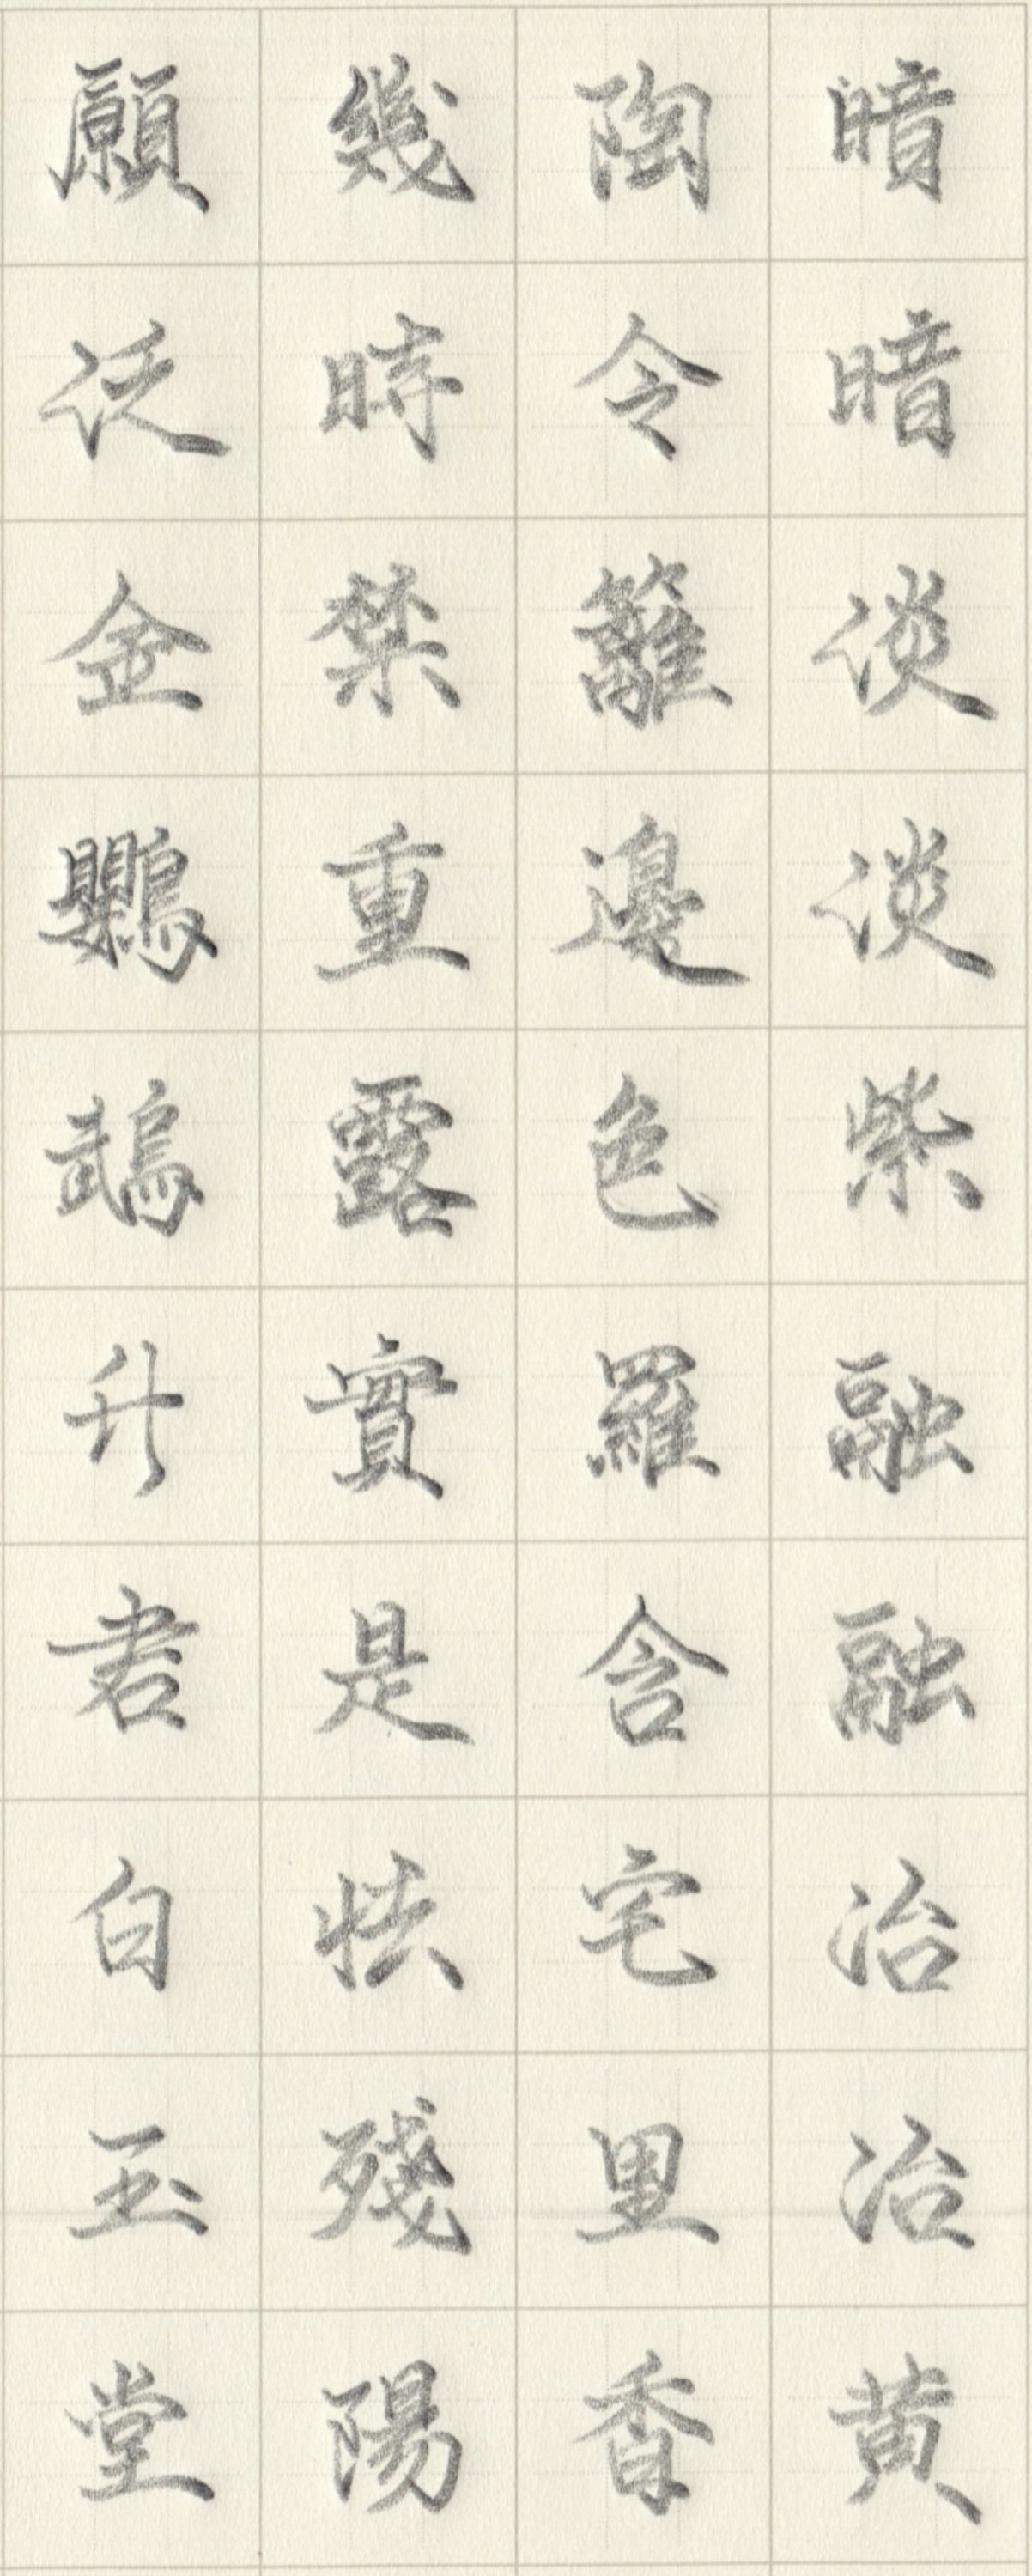 暗暗淡淡紫融融冶冶黄
陶令籬邊色羅含宅里香
幾時禁重露實是怯殘陽
願泛金鸚鵡升君白玉堂